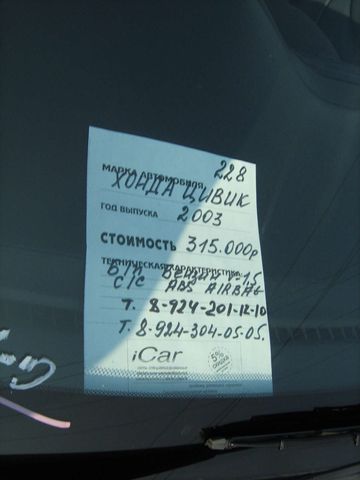 228
МАРКА АВТОМОБИЛЯ
ХОНДА ЦИВИК
ГОД ВЫПУСКА 2003
СТОИМОСТЬ 315.000р
ТЕХНИЧЕСКАЯ ХАРАКТЕРИСТИКА
Б/П БЕНЗИН 1,5
С/С ABS AIRBAG
Т. 8-924-201-12-10
Т. 8-924-304-05-05.
iCar
5%